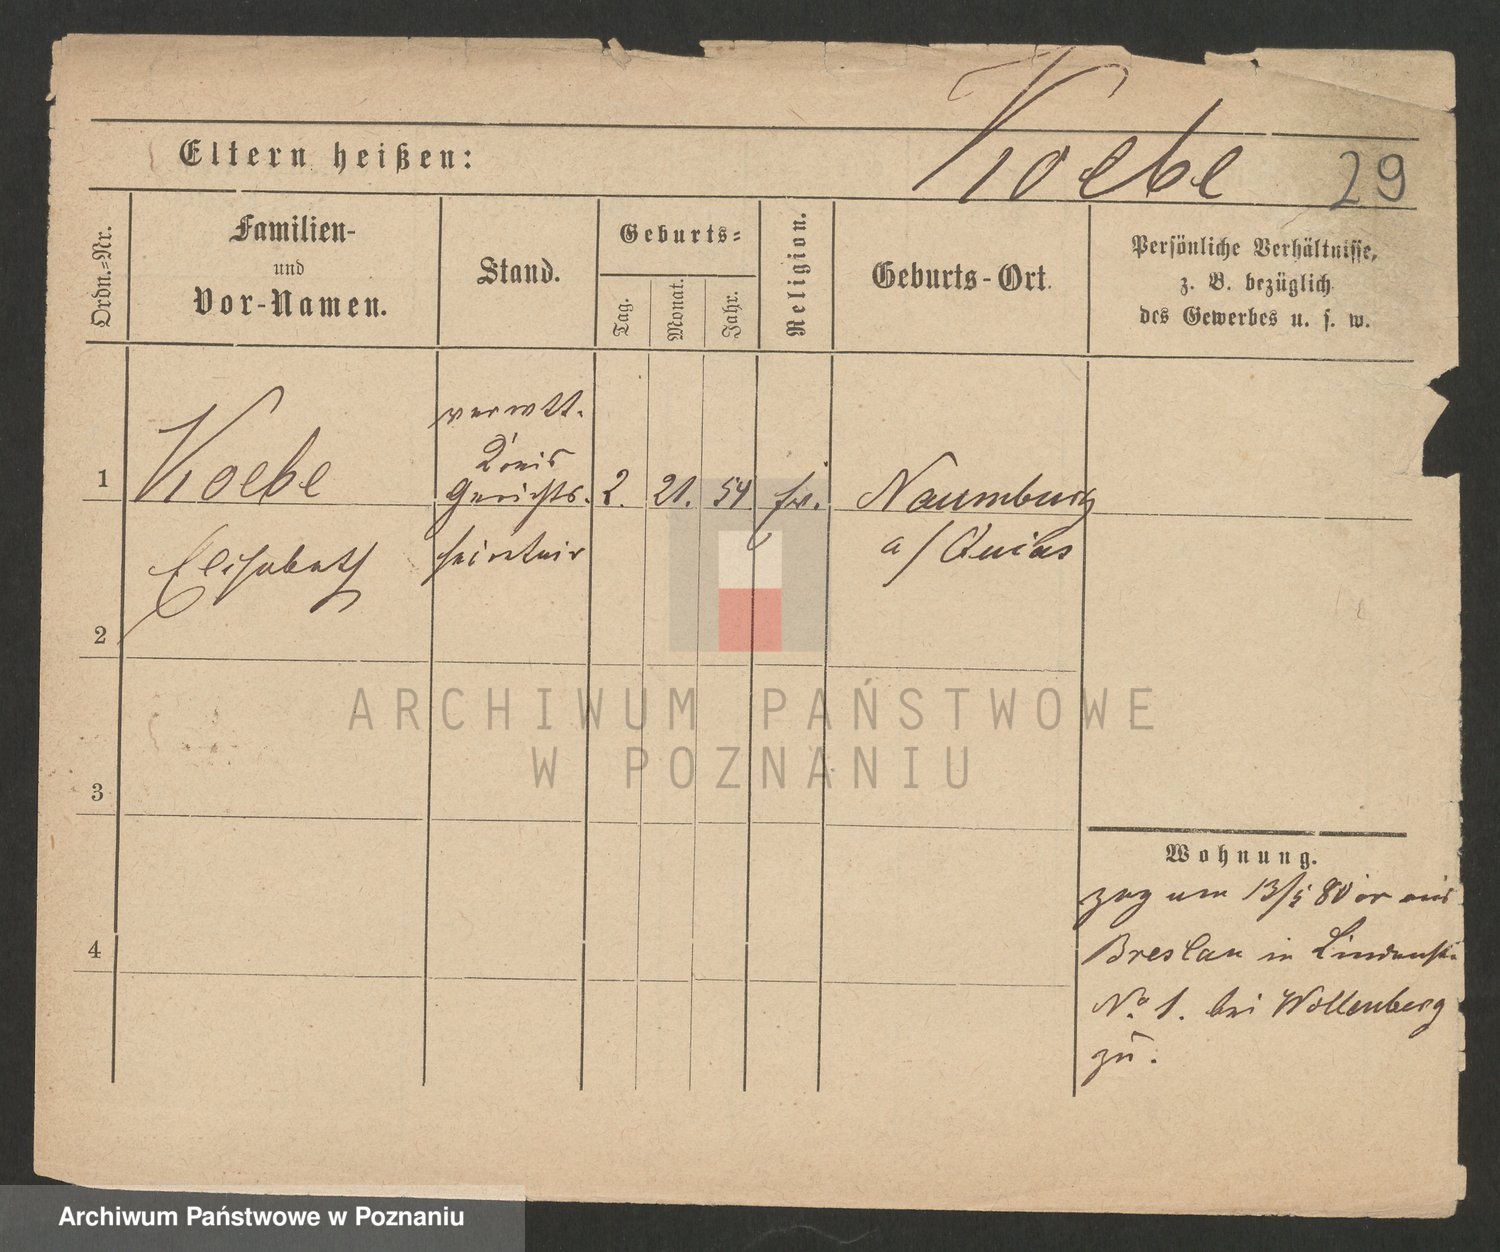 Koebe
29
Eltern heißen:
Ordn.-Nr.
Familien-
und
Vor-Namen.
Stand.
Geburts-
Tag.
Monat.
Jahr.
Religion.
Geburts-Ort.
Persönliche Verhältnisse,
z. B. bezüglich
des Gewerbes u. s. w.
1
Koebe
Elisabeth
verwitt.
Kreis
Gerichts-
sekretair
2.
21.
54
Naumburg
a/Queis
2
3
4
Wohnung.
zog am 13/5 80 aus
Breslau in Lindenstr.
No. 1. bei Wollenberg
zu.
ARCHIWUM PAŃSTWOWE
W POZNANIU
Archiwum Państwowe w Poznaniu